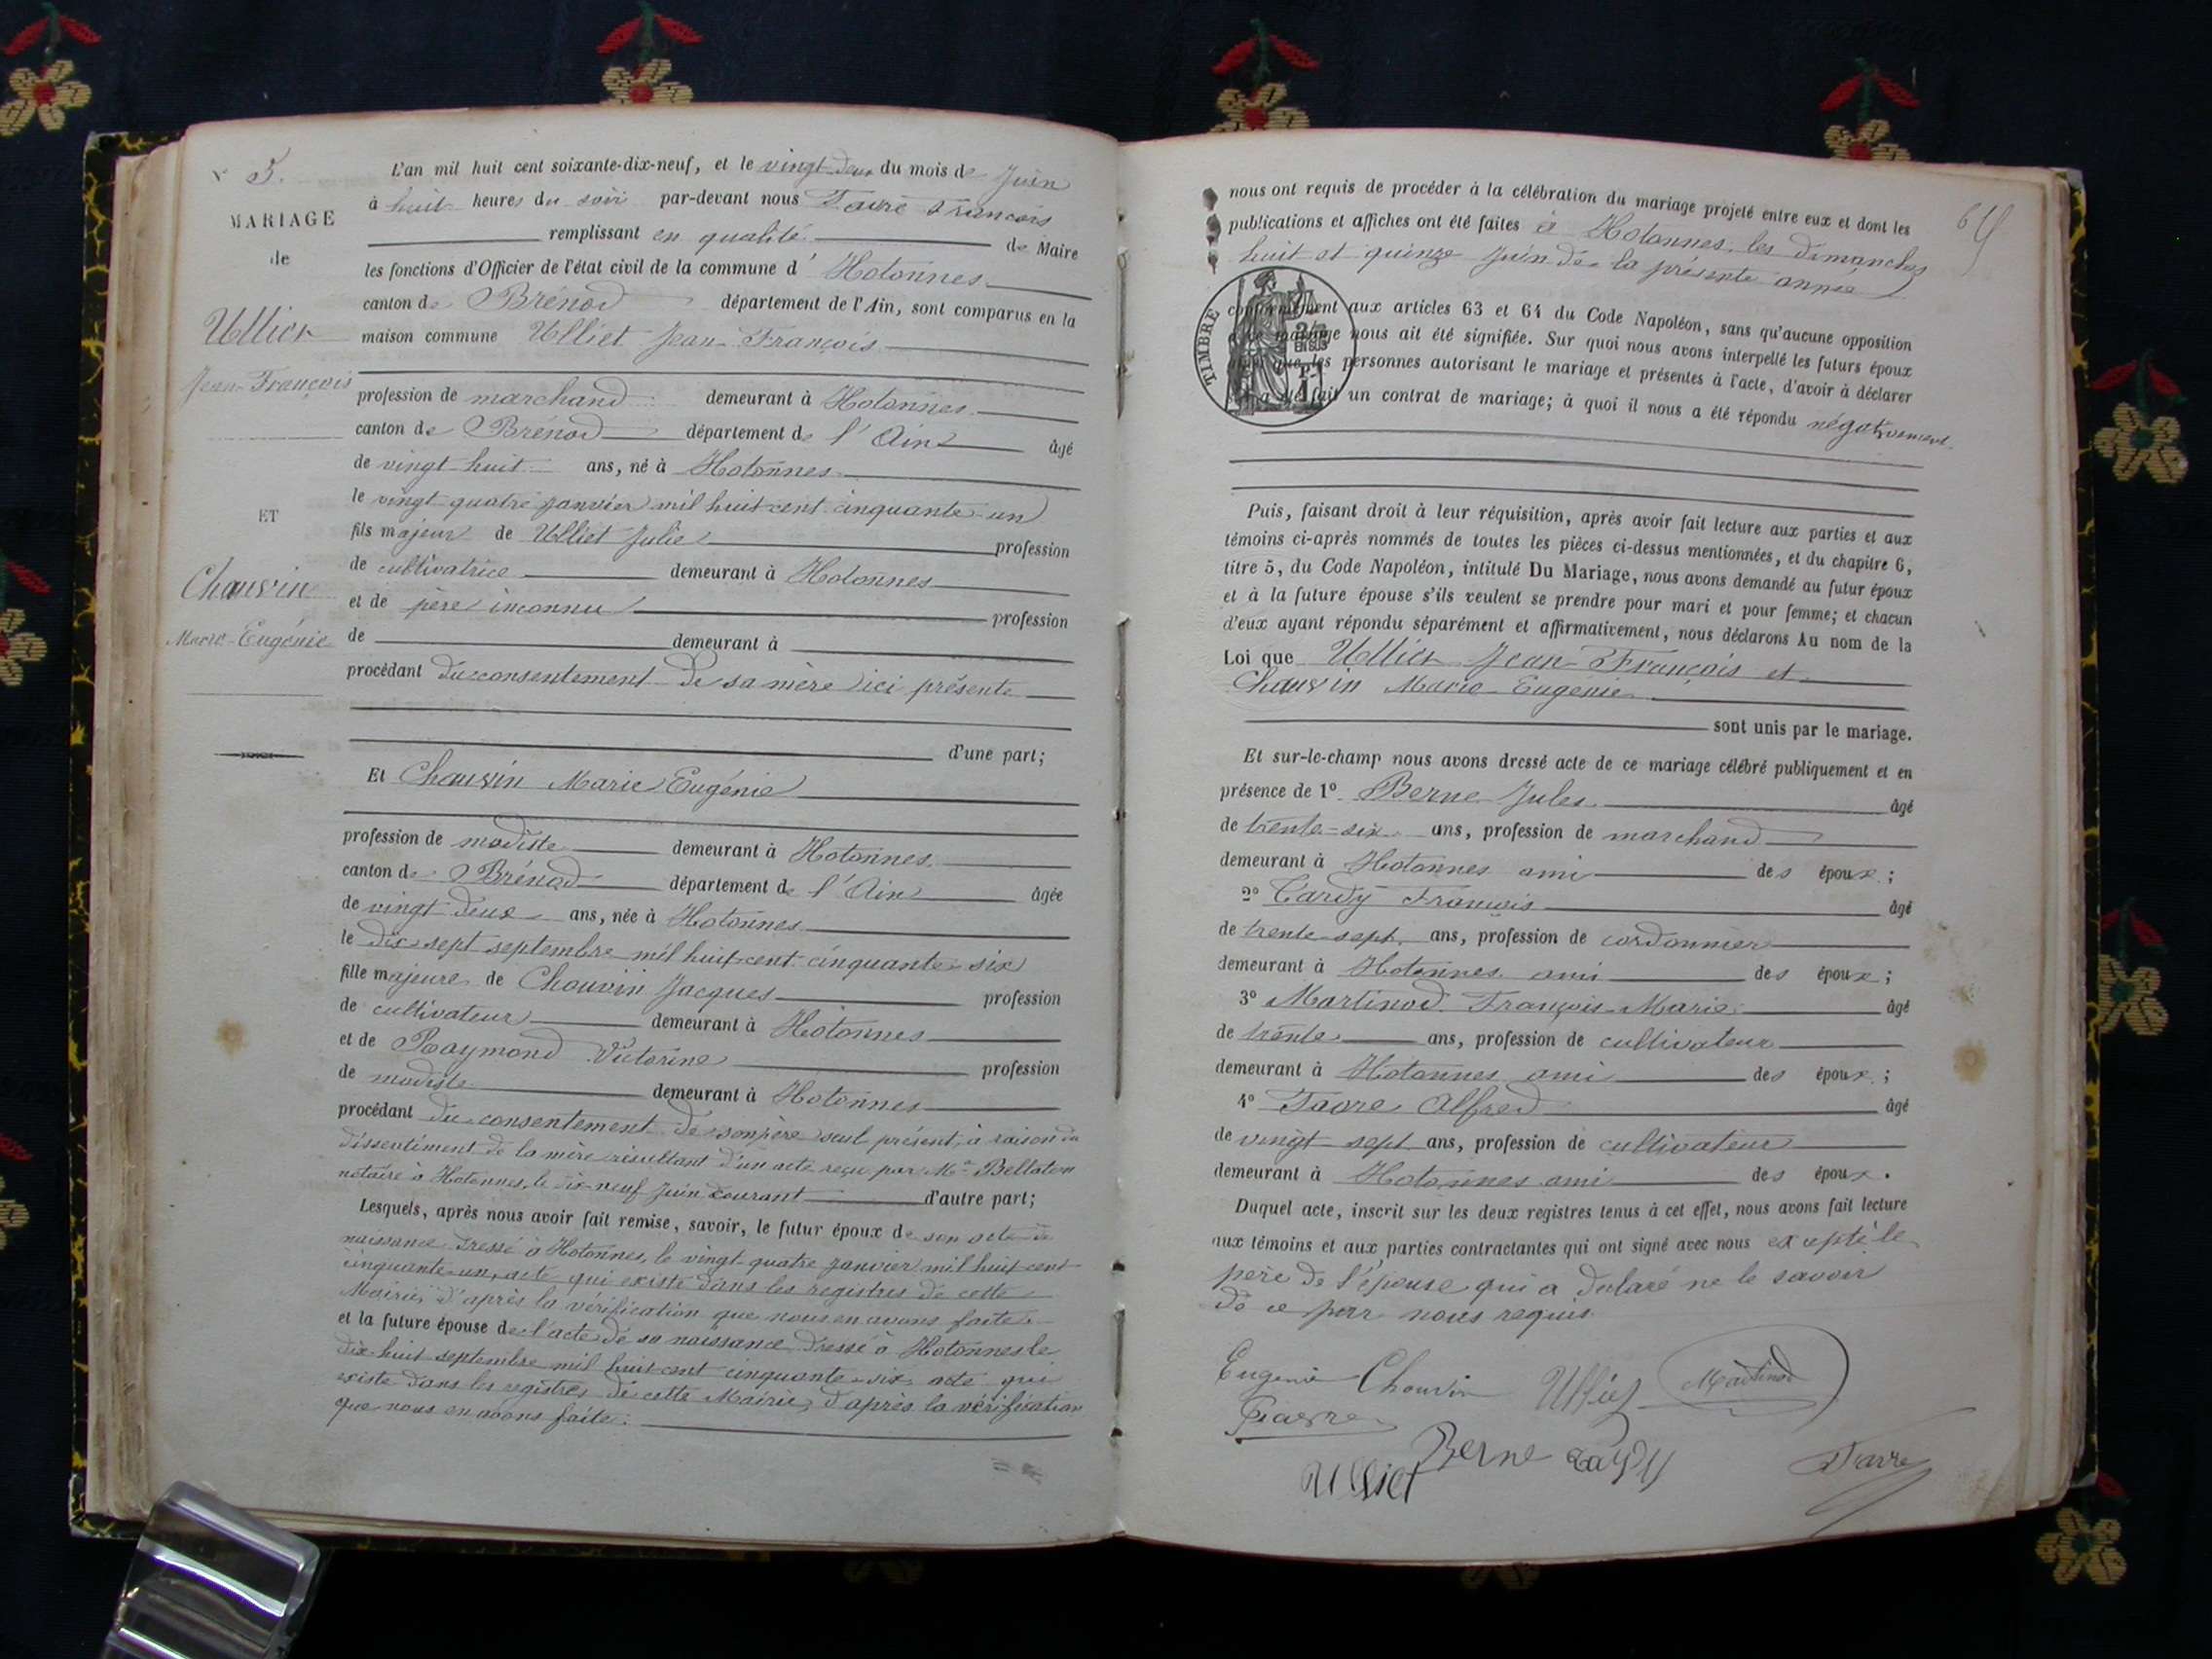 N° 5.
MARIAGE
de
Ulliet
Jean-François
ET
Chauvin
Marie-Eugénie
L'an mil huit cent soixante-dix-neuf, et le vingt-deux du mois de Juin
à huit heures du soir par-devant nous Favre François
remplissant en qualité de Maire
les fonctions d'Officier de l'état civil de la commune d' Hotonnes
canton de Brénod département de l'Ain, sont comparus en la
maison commune Ulliet Jean-François
profession de marchand demeurant à Hotonnes
canton de Brénod département de l'Ain âgé
de vingt-huit ans, né à Hotonnes
le vingt-quatre janvier mil huit cent cinquante-un
fils majeur de Ulliet Julie profession
de cultivatrice demeurant à Hotonnes
et de père inconnu profession
de demeurant à
procédant du consentement de sa mère ici présente
d'une part;
Et Chauvin Marie Eugénie
profession de modiste demeurant à Hotonnes
canton de Brénod département de l'Ain âgée
de vingt deux ans, née à Hotonnes
le dix-sept septembre mil huit cent cinquante-six
fille majeure de Chauvin Jacques profession
de cultivateur demeurant à Hotonnes
et de Raymond Victorine profession
de modiste demeurant à Hotonnes
procédant du consentement de son père seul présent, à raison du
dissentiment de la mère résultant d'un acte reçu par Me Bellaton
notaire à Hotonnes, le dix-neuf juin courant d'autre part;
Lesquels, après nous avoir fait remise, savoir, le futur époux de son acte de
naissance dressé à Hotonnes, le vingt-quatre janvier mil huit cent
cinquante-un, acte qui existe dans les registres de cette
Mairie, d'après la vérification que nous en avons faite
et la future épouse de l'acte de sa naissance dressé à Hotonnes le
dix-huit septembre mil huit cent cinquante-six, acte qui
existe dans les registres de cette Mairie, d'après la vérification
que nous en avons faite:
nous ont requis de procéder à la célébration du mariage projeté entre eux et dont les
publications et affiches ont été faites à Hotonnes, les dimanches
huit et quinze juin de la présente année
TIMBRE
conformément aux articles 63 et 64 du Code Napoléon, sans qu'aucune opposition
mariage nous ait été signifiée. Sur quoi nous avons interpellé les futurs époux
que les personnes autorisant le mariage et présentes à l'acte, d'avoir à déclarer
fait un contrat de mariage; à quoi il nous a été répondu négativement
Puis, faisant droit à leur réquisition, après avoir fait lecture aux parties et aux
témoins ci-après nommés de toutes les pièces ci-dessus mentionnées, et du chapitre 6,
titre 5, du Code Napoléon, intitulé Du Mariage, nous avons demandé au futur époux
et à la future épouse s'ils veulent se prendre pour mari et pour femme; et chacun
d'eux ayant répondu séparément et affirmativement, nous déclarons Au nom de la
Loi que Ulliet Jean-François et
Chauvin Marie-Eugénie
sont unis par le mariage.
Et sur-le-champ nous avons dressé acte de ce mariage célébré publiquement et en
présence de 1° Berne Jules âgé
de trente-six ans, profession de marchand
demeurant à Hotonnes ami des époux;
2° Tardy François âgé
de trente-sept ans, profession de cordonnier
demeurant à Hotonnes ami des époux;
3° Martinod François-Marie âgé
de trente ans, profession de cultivateur
demeurant à Hotonnes ami des époux;
4° Favre Alfred âgé
de vingt-sept ans, profession de cultivateur
demeurant à Hotonnes ami des époux.
Duquel acte, inscrit sur les deux registres tenus à cet effet, nous avons fait lecture
aux témoins et aux parties contractantes qui ont signé avec nous excepté le
père de l'épouse qui a déclaré ne le savoir
de ce par nous requis.
Eugénie Chauvin Ulliet Martinod
Favre
Berne Tardy Favre
Ulliet